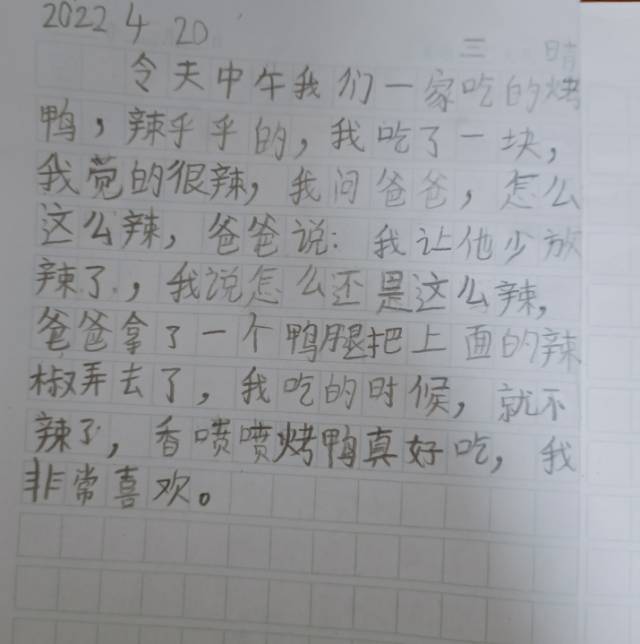 2022 4 20 三 晴
令夫中午我们一家吃的烤
鸭，辣乎乎的，我吃了一块，
我觉的很辣，我问爸爸，怎么
这么辣，爸爸说：我让他少放
辣了，我说怎么还是这么辣，
爸爸拿了一个鸭腿把上面的辣
椒弄去了，我吃的时候，就不
辣了，香喷喷烤鸭真好吃，我
非常喜欢。